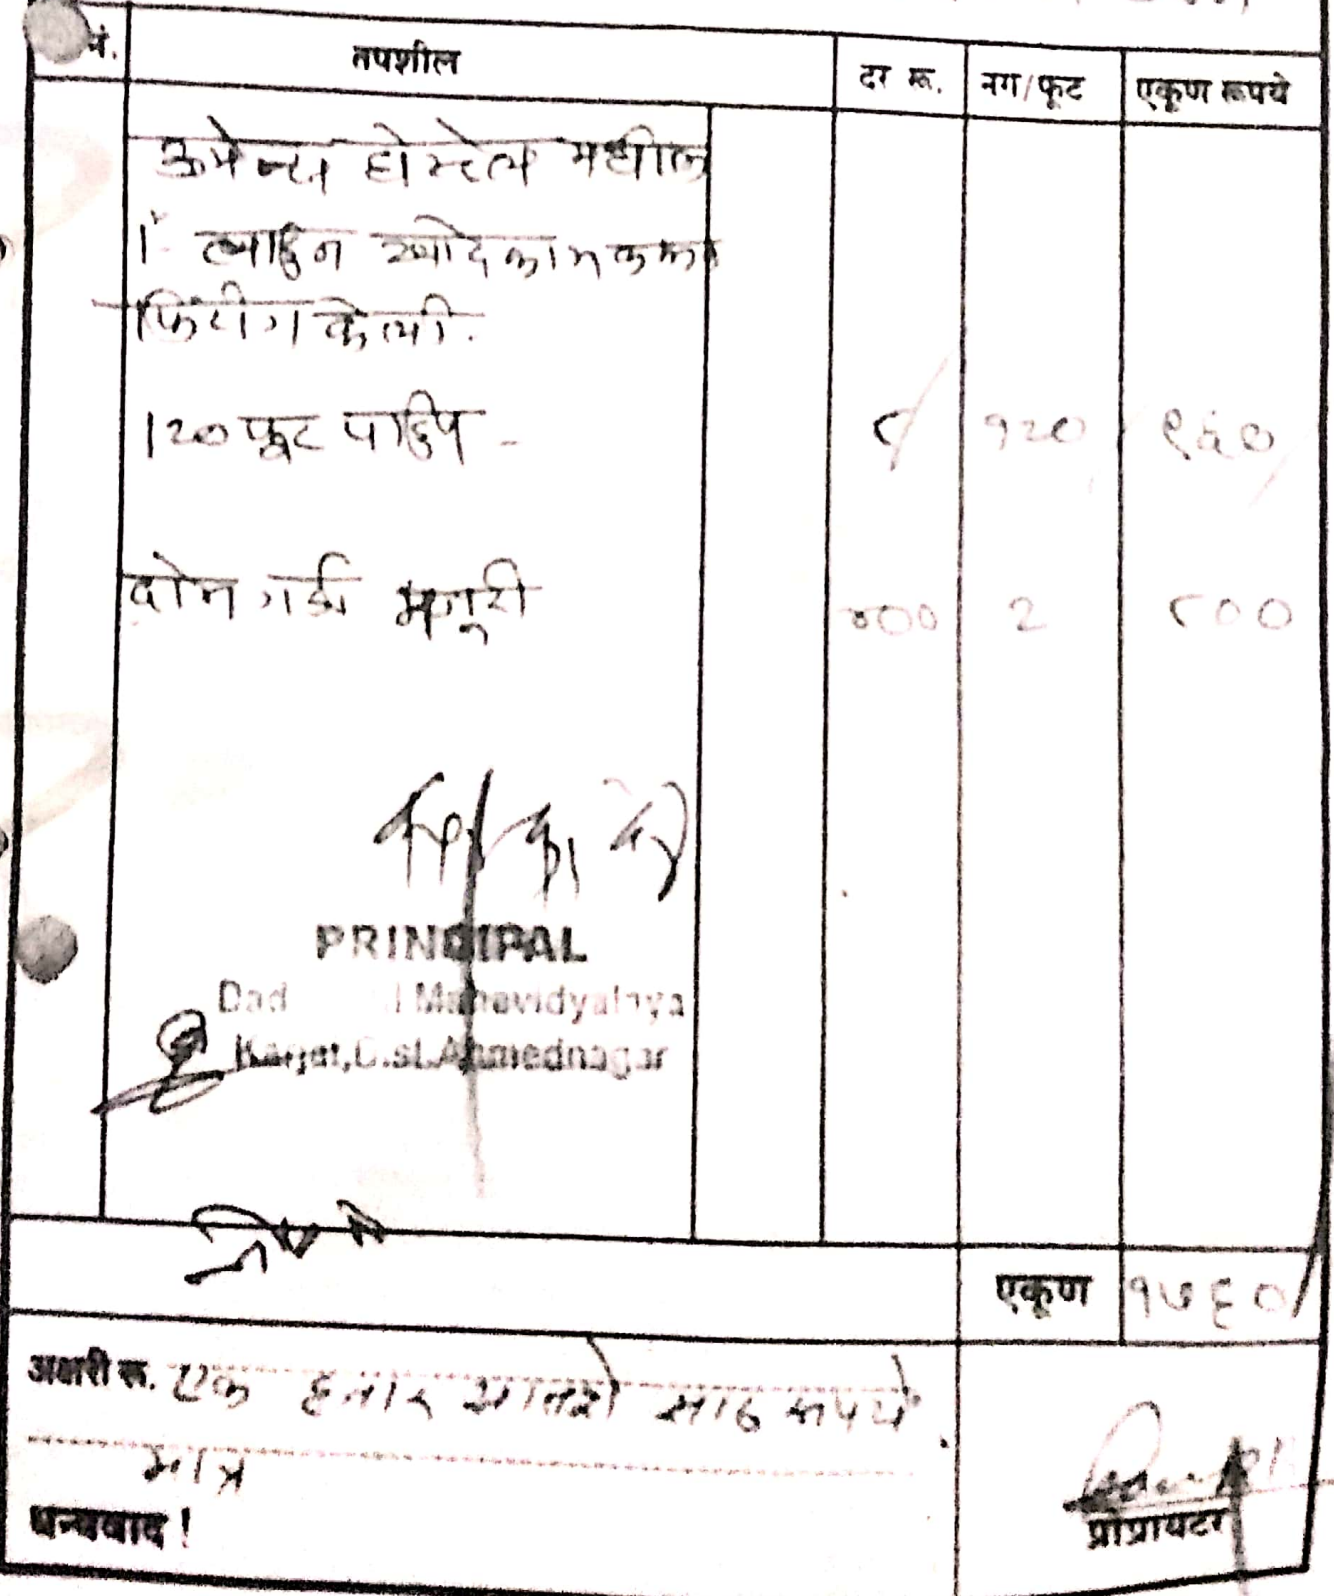 नं. तपशील दर रू. नग/फूट एकूण रूपये
वुमेन्स होस्टेल मधील
1" लाईन खोदकाम करून
फिटींग केली.
120 फूट पाईप - ८/ १२० ९६०/
दोन गडी मजूरी ४०० २ ८००
PRINCIPAL
Dad l Mahavidyalaya
Karjat, Dist. Ahmednagar
एकूण १७६०/
अक्षरी रू. एक हजार सातशे साठ रूपये
मात्र
धन्यवाद !
प्रोप्रायटर